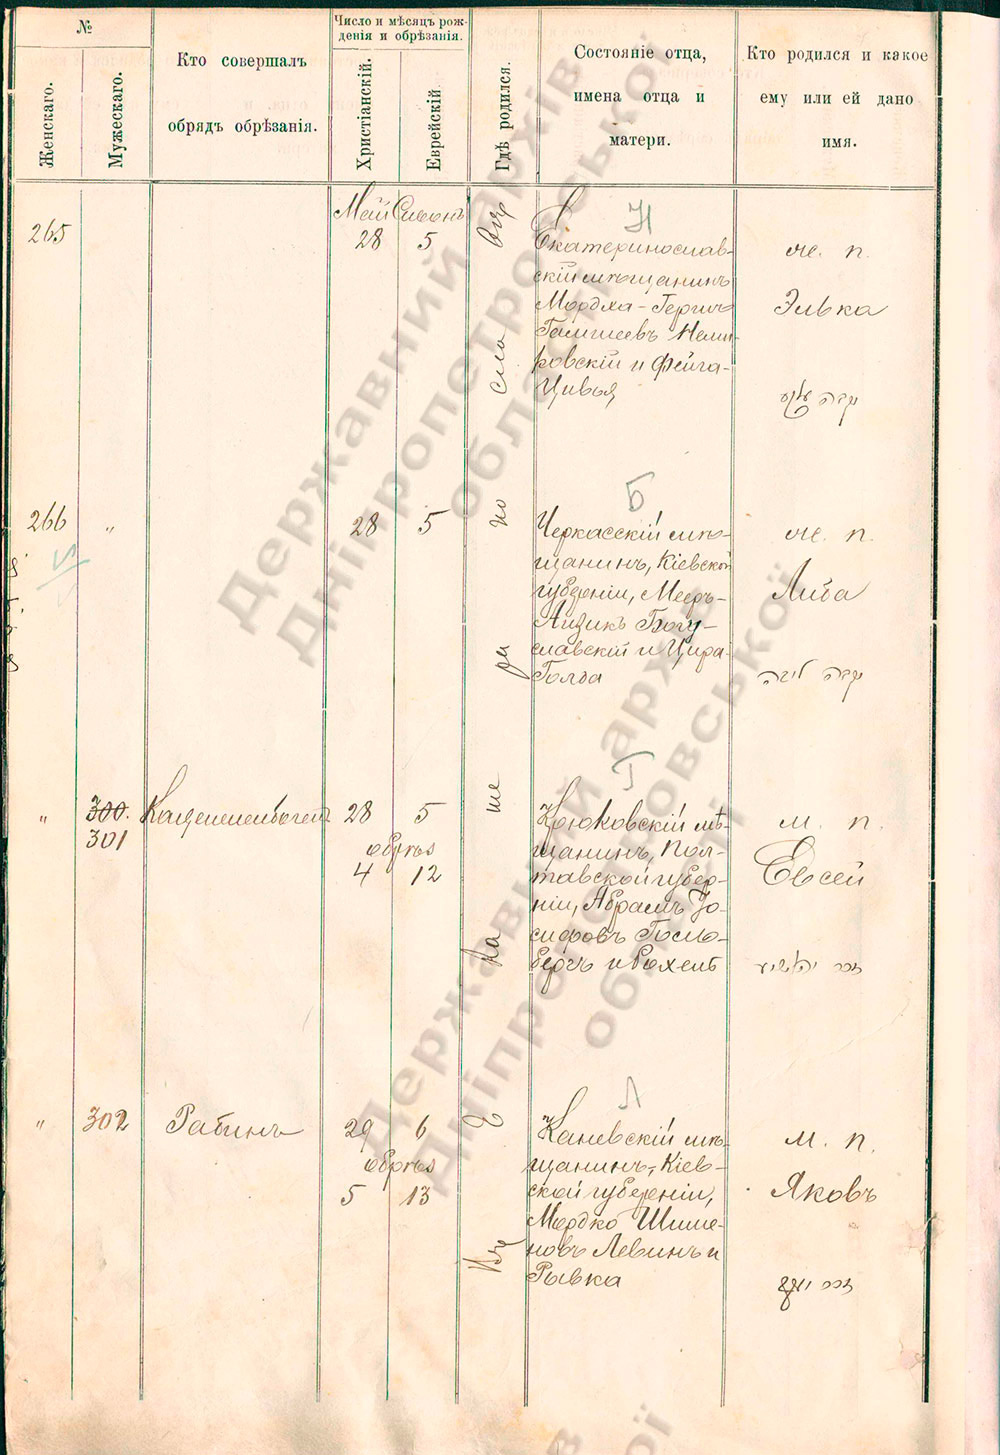 №
Женскаго.
Мужескаго.
Кто совершалъ
обрядъ обрѣзанія.
Число и мѣсяцъ рож-
денія и обрѣзанія.
Христіанскій.
Еврейскій.
Гдѣ родился.
Состояніе отца,
имена отца и
матери.
Кто родился и какое
ему или ей дано
имя.
Май Сивонъ
265
28 5
Н
Екатеринослав-
скій мѣщанинъ
Мордха-Гершъ
Немировскій и Фейга-
Цивья
же. п.
Элька
נקבה עלקע
266 "
28 5
Б
Черкасскій мѣ-
щанинъ, Кіевской
губерніи, Мееръ-
Айзикъ Богу-
славскій и Цира-
Голда
же. п.
Либа
נקבה ליבה
Екатеринославѣ
"
300.
301
28 5
обрѣз
4 12
Г
Крюковскій мѣ-
щанинъ, Пол-
тавской губер-
ніи, Абрамъ Іо-
сифовъ Гольд-
бергъ и Рохель
м. п.
Евсей
זכר יהושיע
" 302
Рабинъ
29 6
обрѣз
5 13
Л
Каневскій мѣ-
щанинъ, Кіев-
ской губерніи,
Мордко Шиме-
новъ Левинъ и
Рывка
м. п.
Яковъ
זכר יעקב
Державний архів
Дніпропетровської
області
Державний архів
Дніпропетровської
області